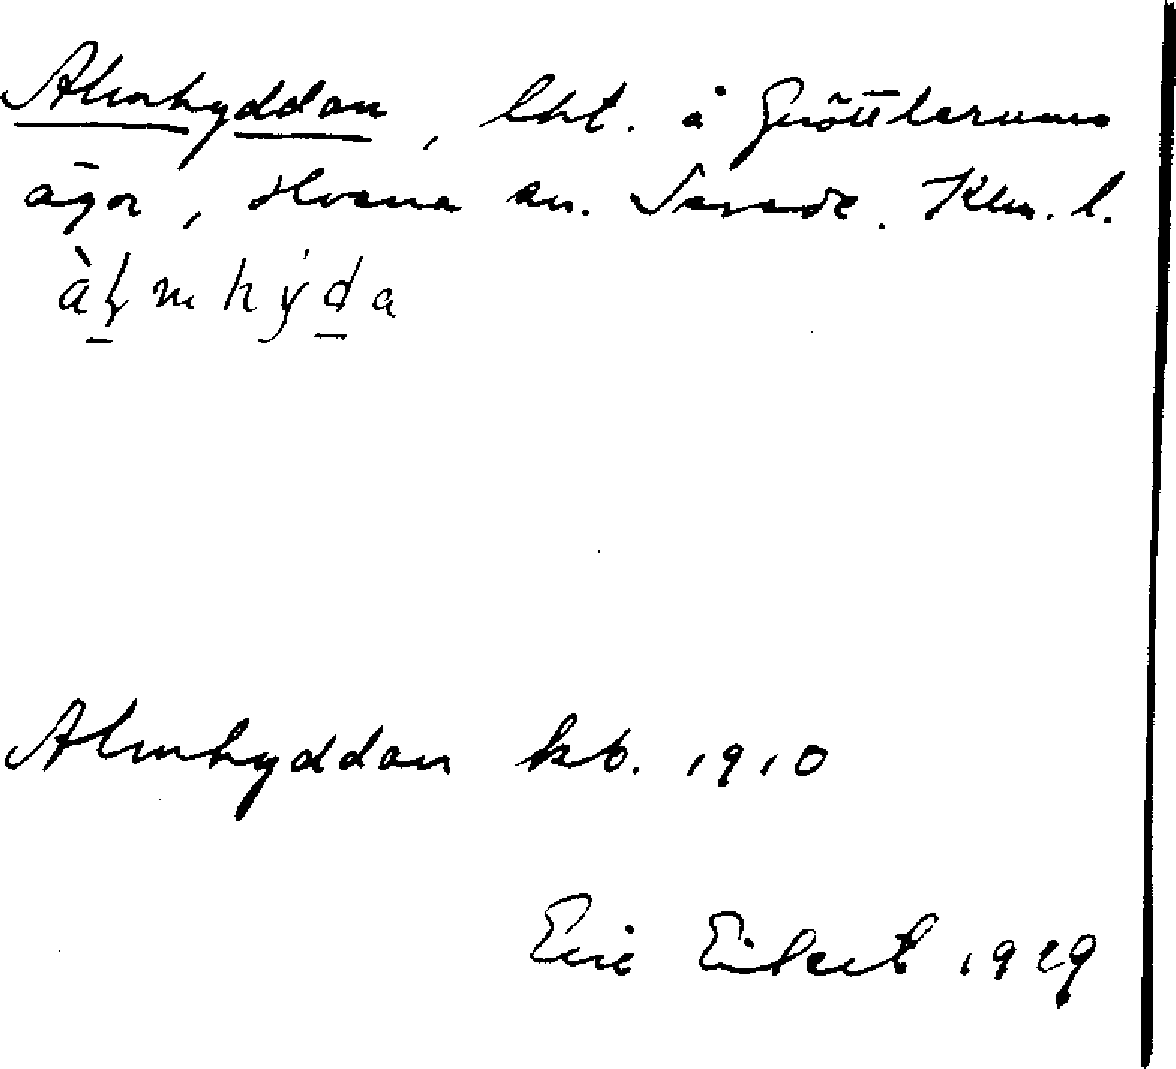 Almhyddan, lht. å Gröttlerums
ägor, Hvena sn. Sevede. Klm. l.
àl̠mhýd̠a
Almhyddan kb. 1910
Eric Eilert 1929